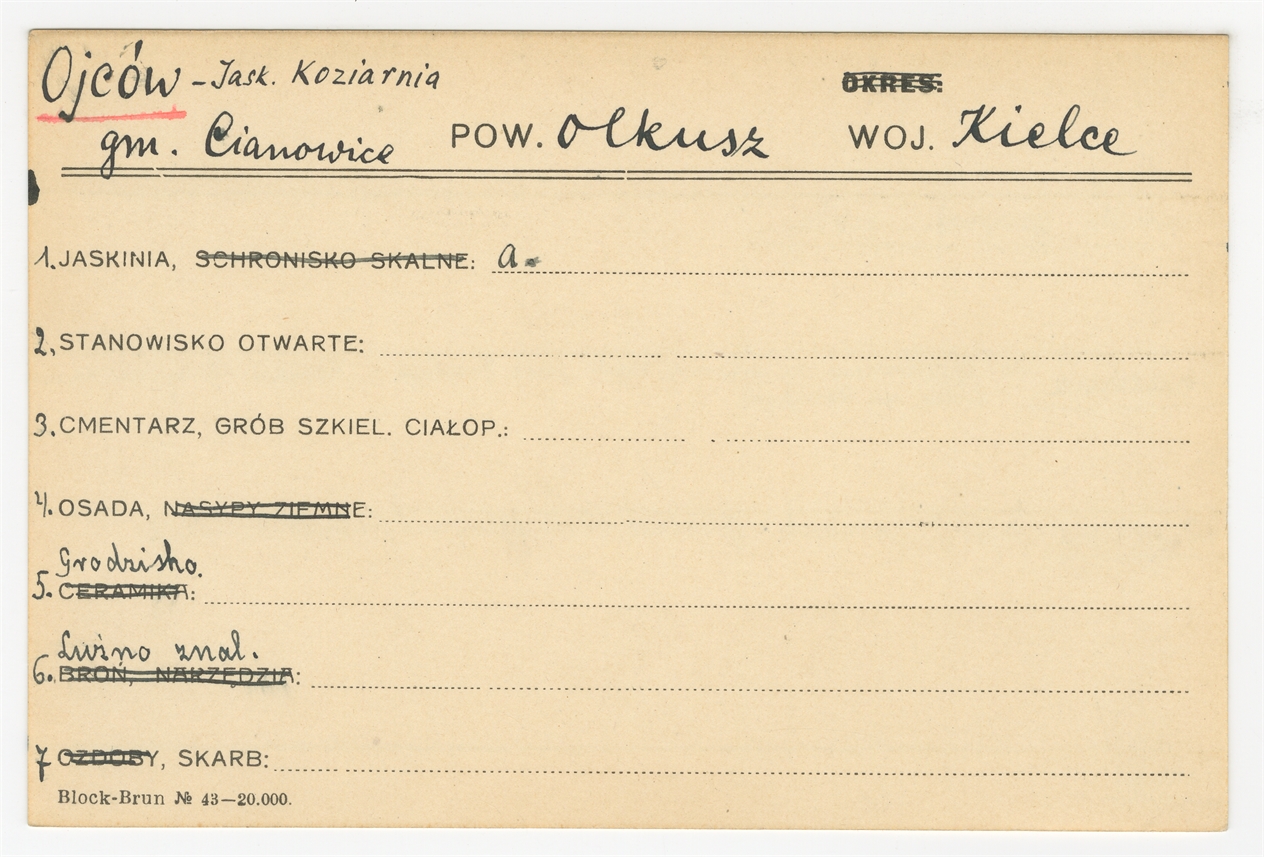 Ojców - Jask. Koziarnia
OKRES:
gm. Cianowice POW. Olkusz WOJ. Kielce
1. JASKINIA, SCHRONISKO SKALNE: a.
2. STANOWISKO OTWARTE:
3. CMENTARZ, GRÓB SZKIEL. CIAŁOP.:
4. OSADA, NASYPY ZIEMNE:
Grodzisko.
5. CERAMIKA:
Luźno znal.
6. BROŃ, NARZĘDZIA:
7 OZDOBY, SKARB:
Block-Brun № 43—20.000.